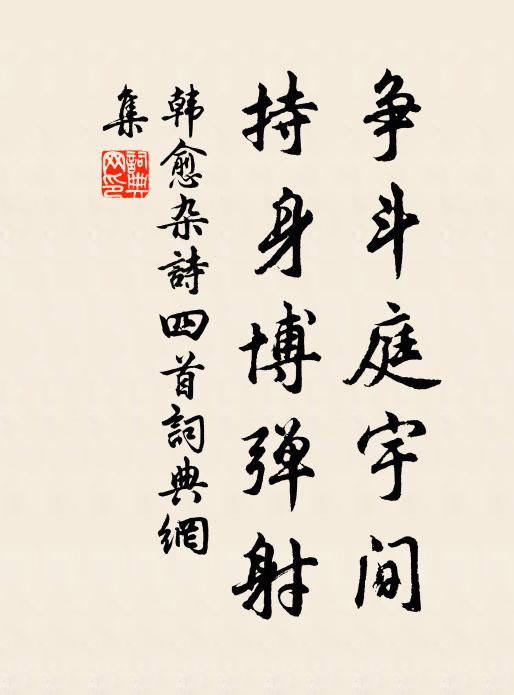 争斗庭宇间
持身博弹射
韩愈杂詩四首詞典網
集
詞典
网印